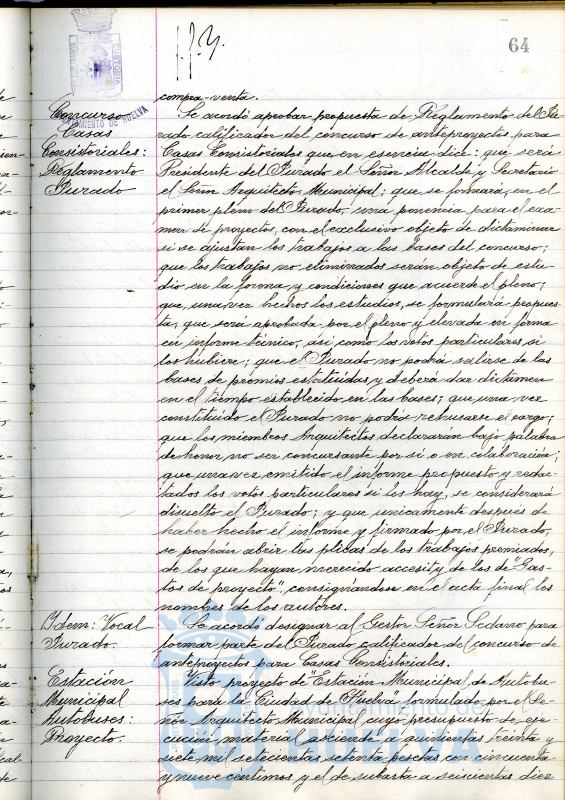 64
compra-venta.
Concurso
Casas
Consistoriales:
Reglamento
Jurado
Se acordó aprobar propuesta de Reglamento del Ju-
rado calificador del concurso de anteproyectos para
Casas Consistoriales que en esencia dice: que será
Presidente del Jurado el Señor Alcalde y Secretario
el Señor Arquitecto Municipal; que se formará, en el
primer pleno del Jurado, una ponencia para el exa-
men de proyectos, con el exclusivo objeto de dictaminar
si se ajustan los trabajos a las bases del concurso;
que los trabajos no eliminados serán objeto de estu-
dio en la forma y condiciones que acuerde el pleno;
que, una vez hechos los estudios, se formulará propues-
ta, que será aprobada por el pleno y elevada en forma
en informe técnico, así como los votos particulares si
los hubiere; que el Jurado no podrá salirse de las
bases de premios estatuidas y deberá dar dictamen
en el tiempo establecido en las bases; que una vez
constituido el Jurado no podrá rehusarse el cargo;
que los miembros Arquitectos declararán bajo palabra
de honor no ser concursante por sí o en colaboración;
que una vez emitido el informe propuesto y redac-
tados los votos particulares si los hay, se considerará
disuelto el Jurado; y que unicamente después de
haber hecho el informe y firmado por el Jurado,
se podrán abrir las plicas de los trabajos premiados,
de los que hayan merecido accesit y de los de "Gas-
tos de proyecto", consignándose en el acta final los
nombres de los autores.
Idem: Vocal
Jurado.
Se acordó designar al Gestor Señor Sedano para
formar parte del Jurado calificador del concurso de
anteproyectos para Casas Consistoriales.
Estación
Municipal
Autobuses:
Proyecto.
Visto proyecto de Estación Municipal de Autobu-
ses para la Ciudad de Huelva formulado por el Se-
ñor Arquitecto Municipal cuyo presupuesto de eje-
cución material asciende a quinientas treinta y
siete mil setecientas setenta pesetas con cincuenta
y nueve centimos y el de subasta a seiscientas diez
AYUNTAMIENTO DE HUELVA
Ayuntamiento de
HUELVA